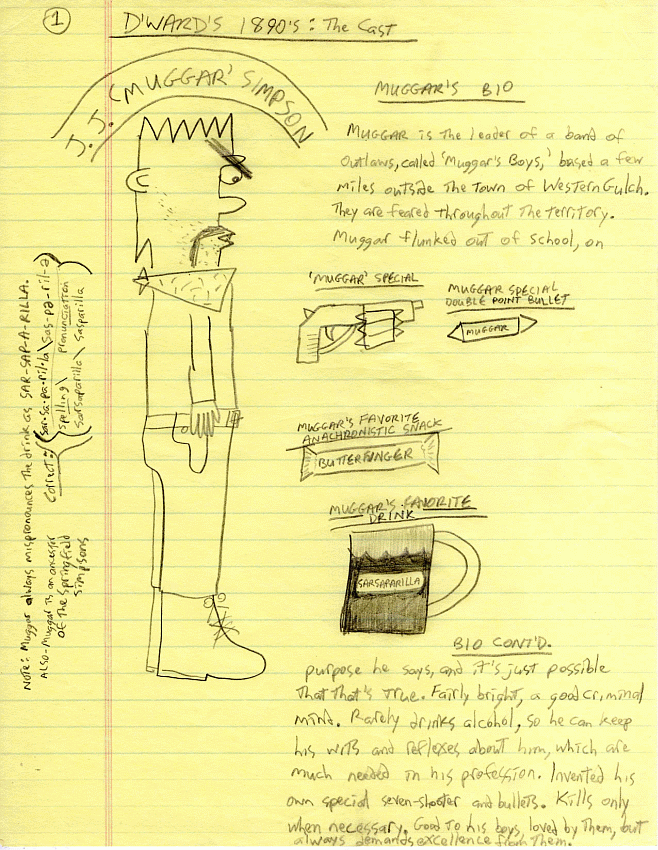 1
D'WARD'S 1890'S: The Cast
J.J. 'MUGGAR' SIMPSON
MUGGAR'S BIO
MUGGAR is the leader of a band of
outlaws, called 'Muggar's Boys,' based a few
miles outside the town of Western Gulch.
They are feared throughout the territory.
Muggar flunked out of school, on
'MUGGAR' SPECIAL
MUGGAR SPECIAL
DOUBLE POINT BULLET
MUGGAR
MUGGAR'S FAVORITE
ANACHRONISTIC SNACK
BUTTERFINGER
MUGGAR'S FAVORITE
DRINK
SARSAPARILLA
BIO CONT'D.
purpose he says, and it's just possible
that that's true. Fairly bright, a good criminal
mind. Rarely drinks alcohol, so he can keep
his wits and reflexes about him, which are
much needed in his profession. Invented his
own special seven-shooter and bullets. Kills only
when necessary. Good to his boys, loved by them, but
always demands excellence from them.
Note: Muggar always mispronounces the drink as SAR-SAP-A-RILLA.
Correct: (sar-sa-pa-ril-la \ sas-pa-ril-a)
spelling \ pronunciation
Sarsaparilla \ Sasparilla
ALSO- Muggar is an ancestor
of the Springfield
Simpsons